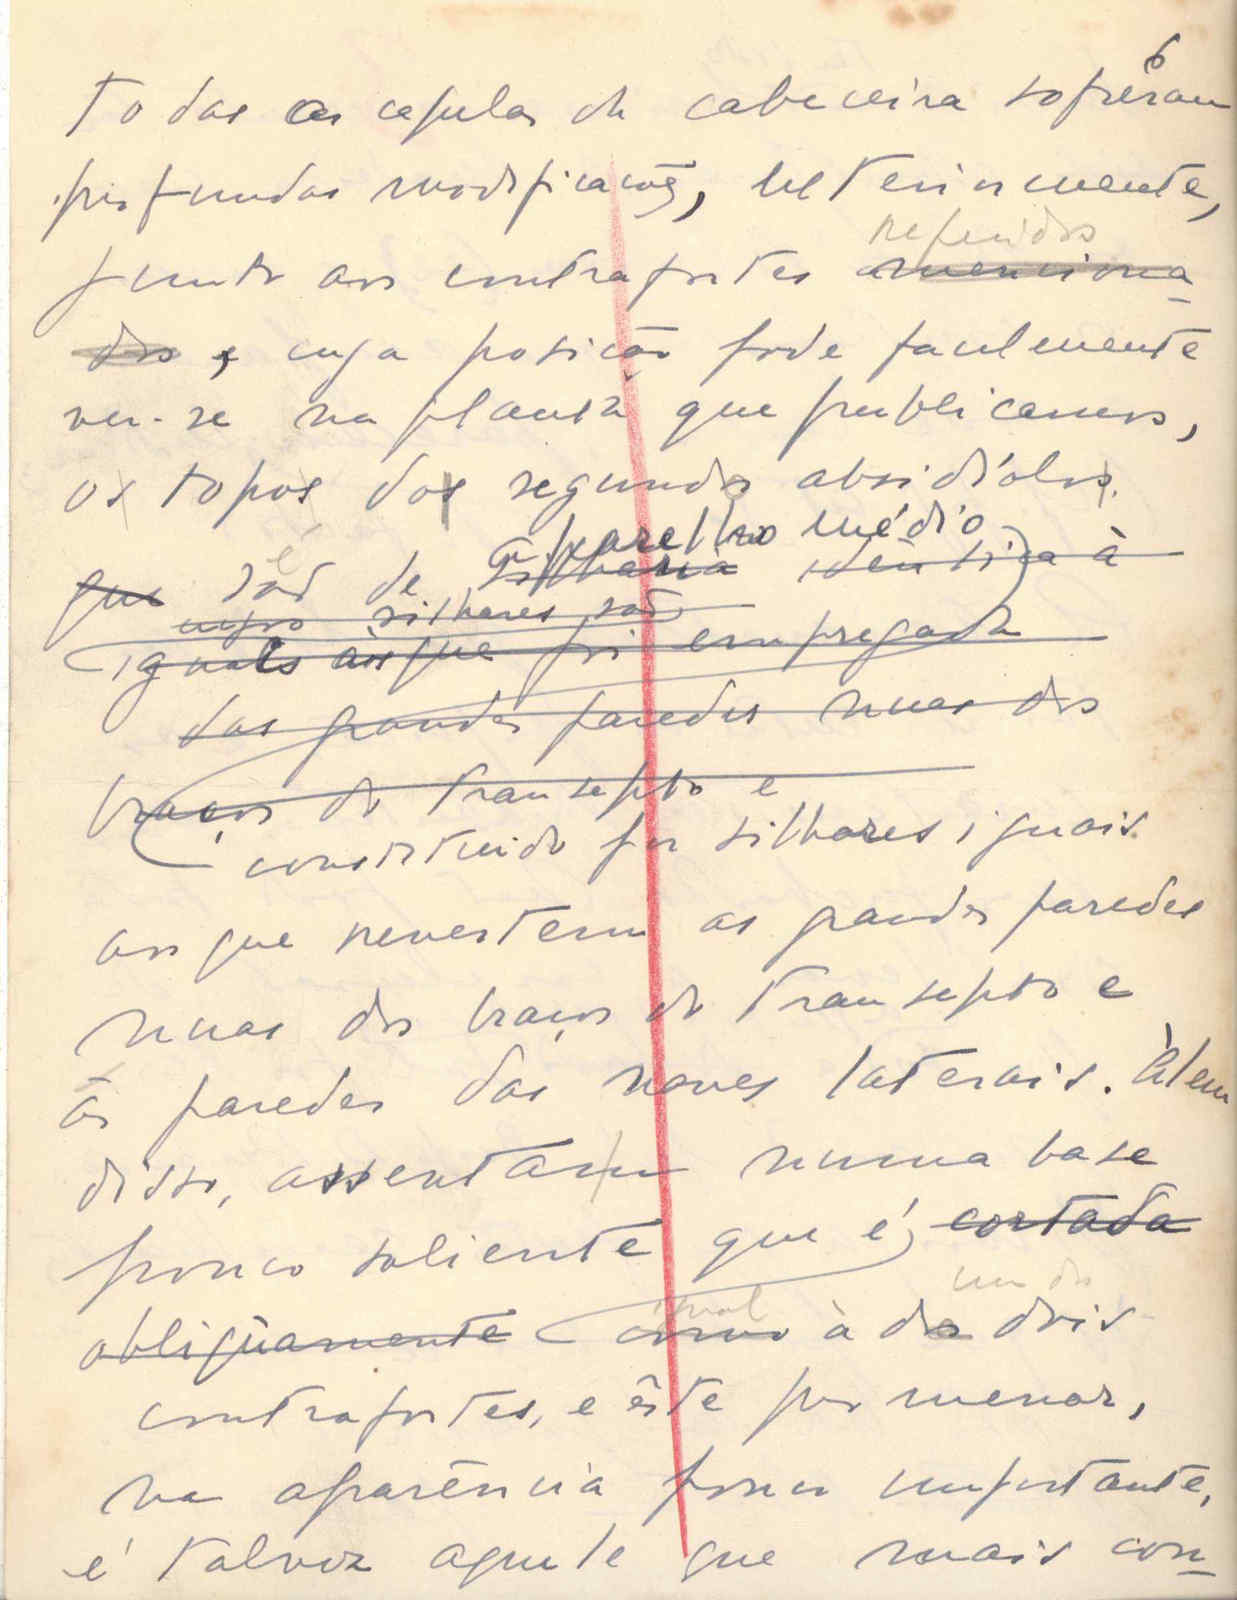 6
Todas as capelas da cabeceira sofreram
profundas modificações, ulteriormente,
referidos
junto aos contrafortes menciona-
dos, cuja posição pode facilmente
ver-se na planta que publicamos,
os topos dos segundos absidíolos
aparelho médio
que são de silharia idêntica à
cujos silhares são
iguais às que foi empregada
das grandes paredes nuas dos
braços do transepto e
constituido por silhares iguais
aos que revestem as grandes paredes
nuas dos braços do transepto e
às paredes das naves laterais. Àlem
disso, assentam numa base
pouco saliente que é cortada
um dos
igual
obliqùamente como à dos dois
contrafortes, e êste pormenor,
na aparência pouco importante,
é talvez aquele que mais con-